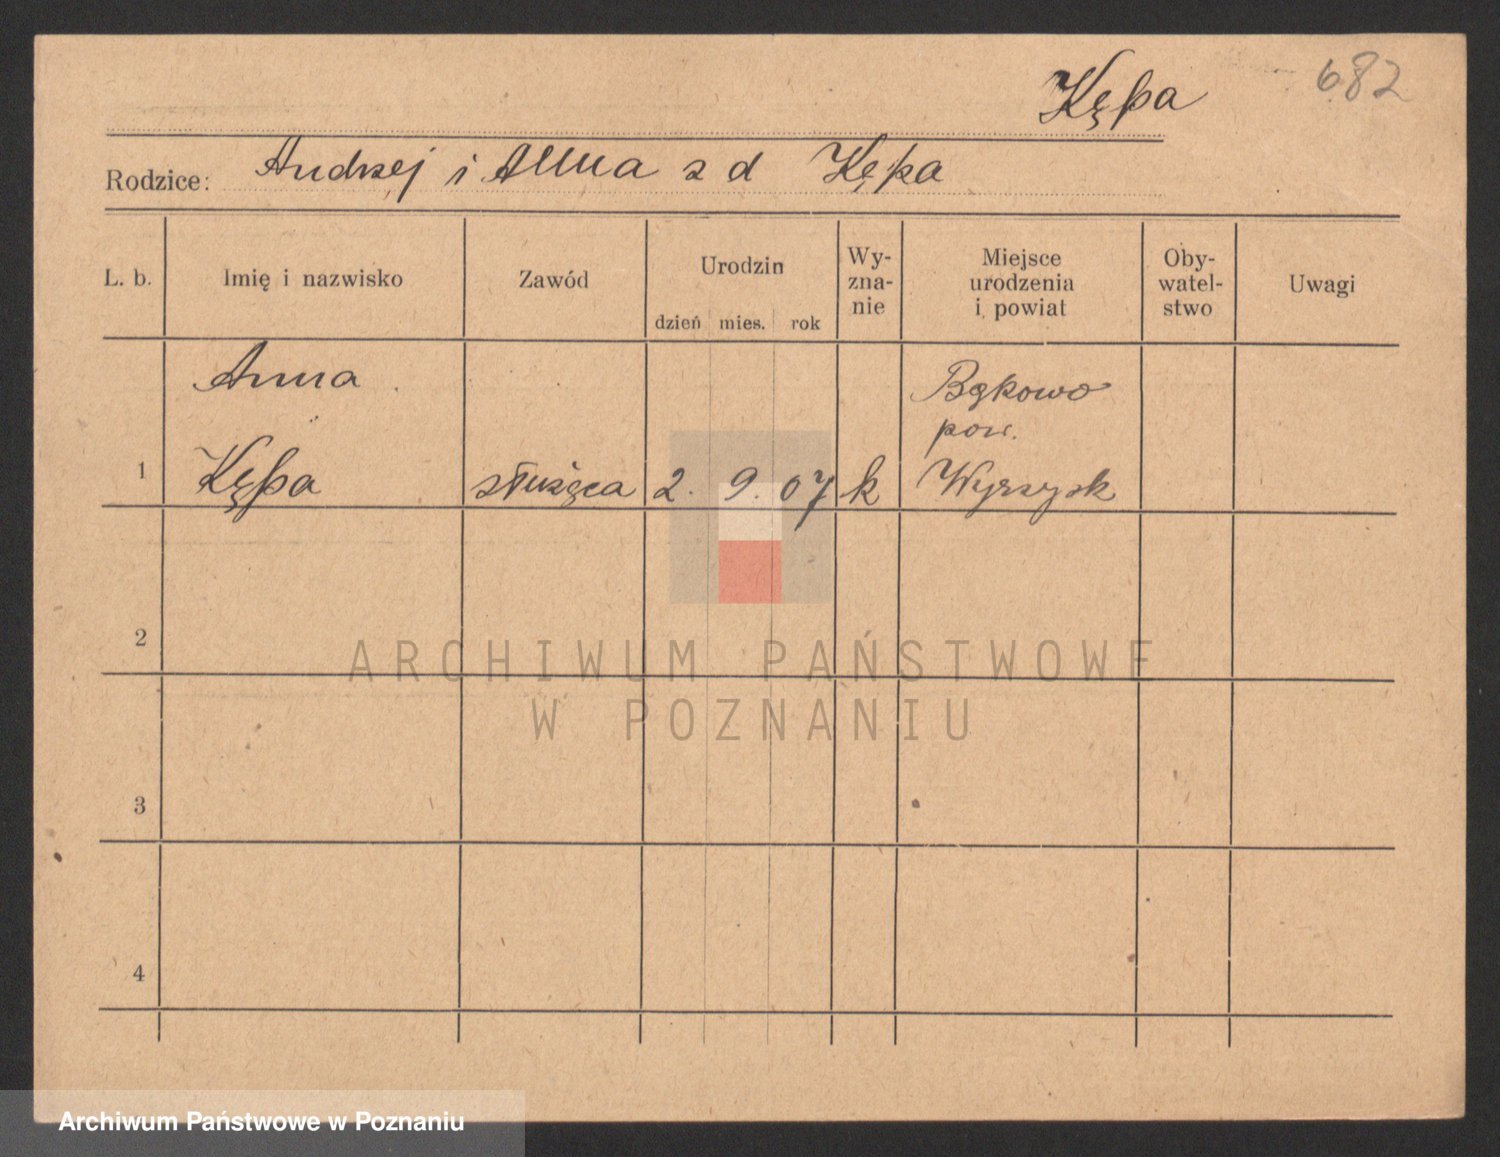 Kępa 682
Rodzice: Andrzej i Anna z d Kępa
L. b. Imię i nazwisko Zawód Urodzin dzień mies. rok Wy-
zna-
nie Miejsce
urodzenia
i powiat Oby-
watel-
stwo Uwagi
Anna
1 Kępa służąca 2. 9. 07 k Bąkowo
pow.
Wyrzysk
2
ARCHIWUM PAŃSTWOWE
W POZNANIU
3
4
Archiwum Państwowe w Poznaniu